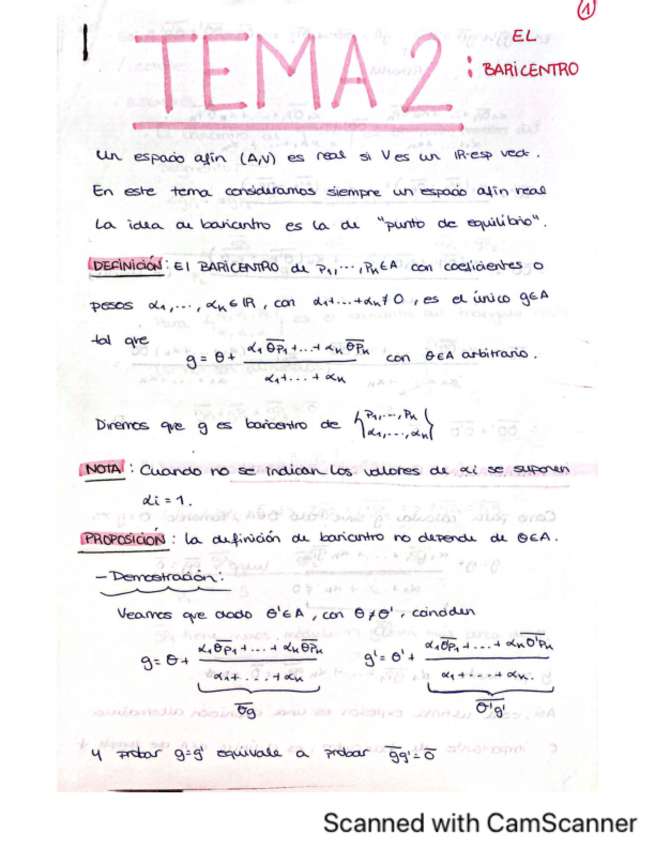 ①
TEMA 2 : EL BARICENTRO
Un espacio afín (A,V) es real si V es un IR-esp vect.
En este tema consideramos siempre un espacio afín real
La idea de baricentro es la de "punto de equilibrio".
DEFINICIÓN: El BARICENTRO de P₁,...,Pₙ∈A con coeficientes o
pesos α₁,...,αₙ∈IR, con α₁+...+αₙ≠0, es el único g∈A
tal que
g = θ + (α₁θP₁ + ... + αₙθPₙ) / (α₁+...+αₙ) con θ∈A arbitrario.
Diremos que g es baricentro de {P₁,...,Pₙ
α₁,...,αₙ}
NOTA: Cuando no se indican los valores de αi se suponen
αi = 1.
PROPOSICIÓN: la definición de baricentro no depende de θ∈A.
- Demostración:
Veamos que dado θ'∈A, con θ≠θ', coinciden
g = θ + (α₁θP₁ + ... + αₙθPₙ) / (α₁+...+αₙ) g' = θ' + (α₁θ'P₁ + ... + αₙθ'Pₙ) / (α₁+...+αₙ)
θg θ'g'
y probar g=g' equivale a probar gg' = 0
Scanned with CamScanner